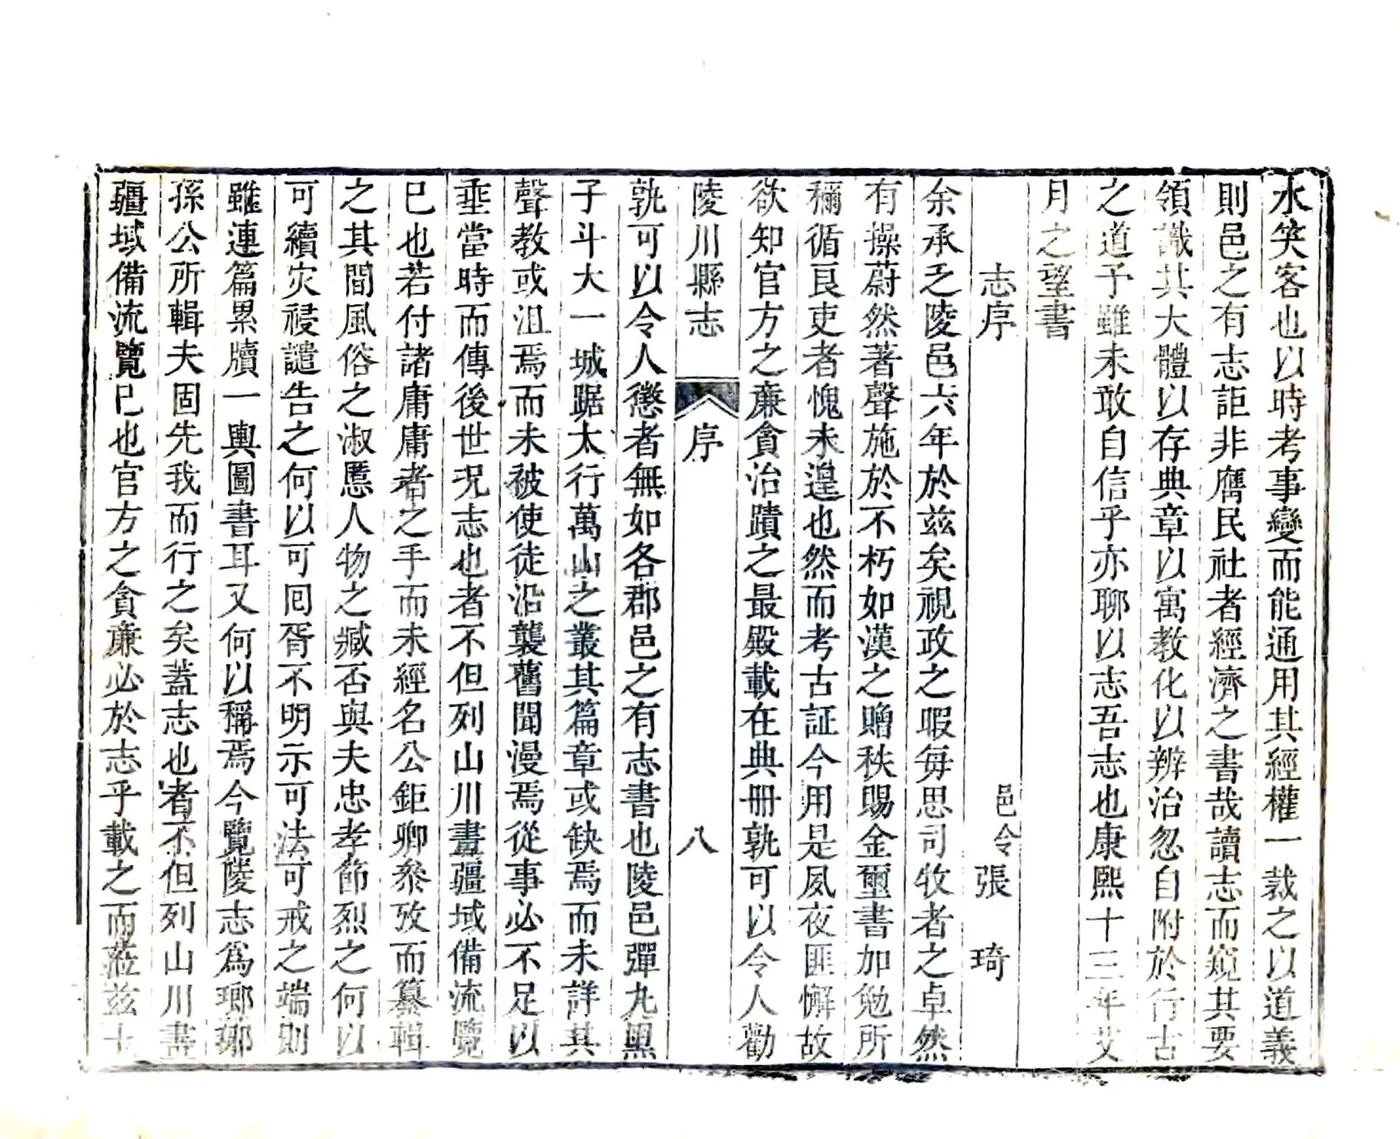 水笑客也以時考事變而能通用其經權一裁之以道義
則邑之有志詎非膺民社者經濟之書哉讀志而窺其要
領識其大體以存典章以寓教化以辨治忽自附於行古
之道予雖未敢自信乎亦聊以志吾志也康熙十三年艾
月之望書
志序
邑令張琦
余承乏陵邑六年於兹矣視政之暇每思司牧者之卓然
有操蔚然著聲施於不朽如漢之贈秩賜金璽書加勉所
稱循良吏者愧未遑也然而考古証今用是夙夜匪懈故
欲知官方之廉貪治蹟之最殿載在典册孰可以令人勸
陵川縣志 序 八
孰可以令人懲者無如各郡邑之有志書也陵邑彈丸黑
子斗大一城踞太行萬山之叢其篇章或缺焉而未詳其
聲教或沮焉而未被使徒沿襲舊聞漫焉從事必不足以
垂當時而傳後世况志也者不但列山川畫疆域備流覽
巳也若付諸庸庸者之手而未經名公鉅卿叅攷而纂輯
之其間風俗之淑慝人物之臧否與夫忠孝節烈之何以
可續灾祲譴告之何以可囘胥不明示可法可戒之端則
雖連篇累牘一輿圖書耳又何以稱焉今覽陵志為瑯琊
孫公所輯夫固先我而行之矣蓋志也者不但列山川畫
疆域備流覽巳也官方之貪廉必於志乎載之而蒞兹土